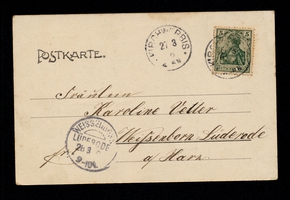 POSTKARTE.
27 3
5
Fräulein
Karoline Vetter
Weissenborn Lüderode
a/Harz.
WEISSENBORN
LÜDERODE
28 3
9-10V.